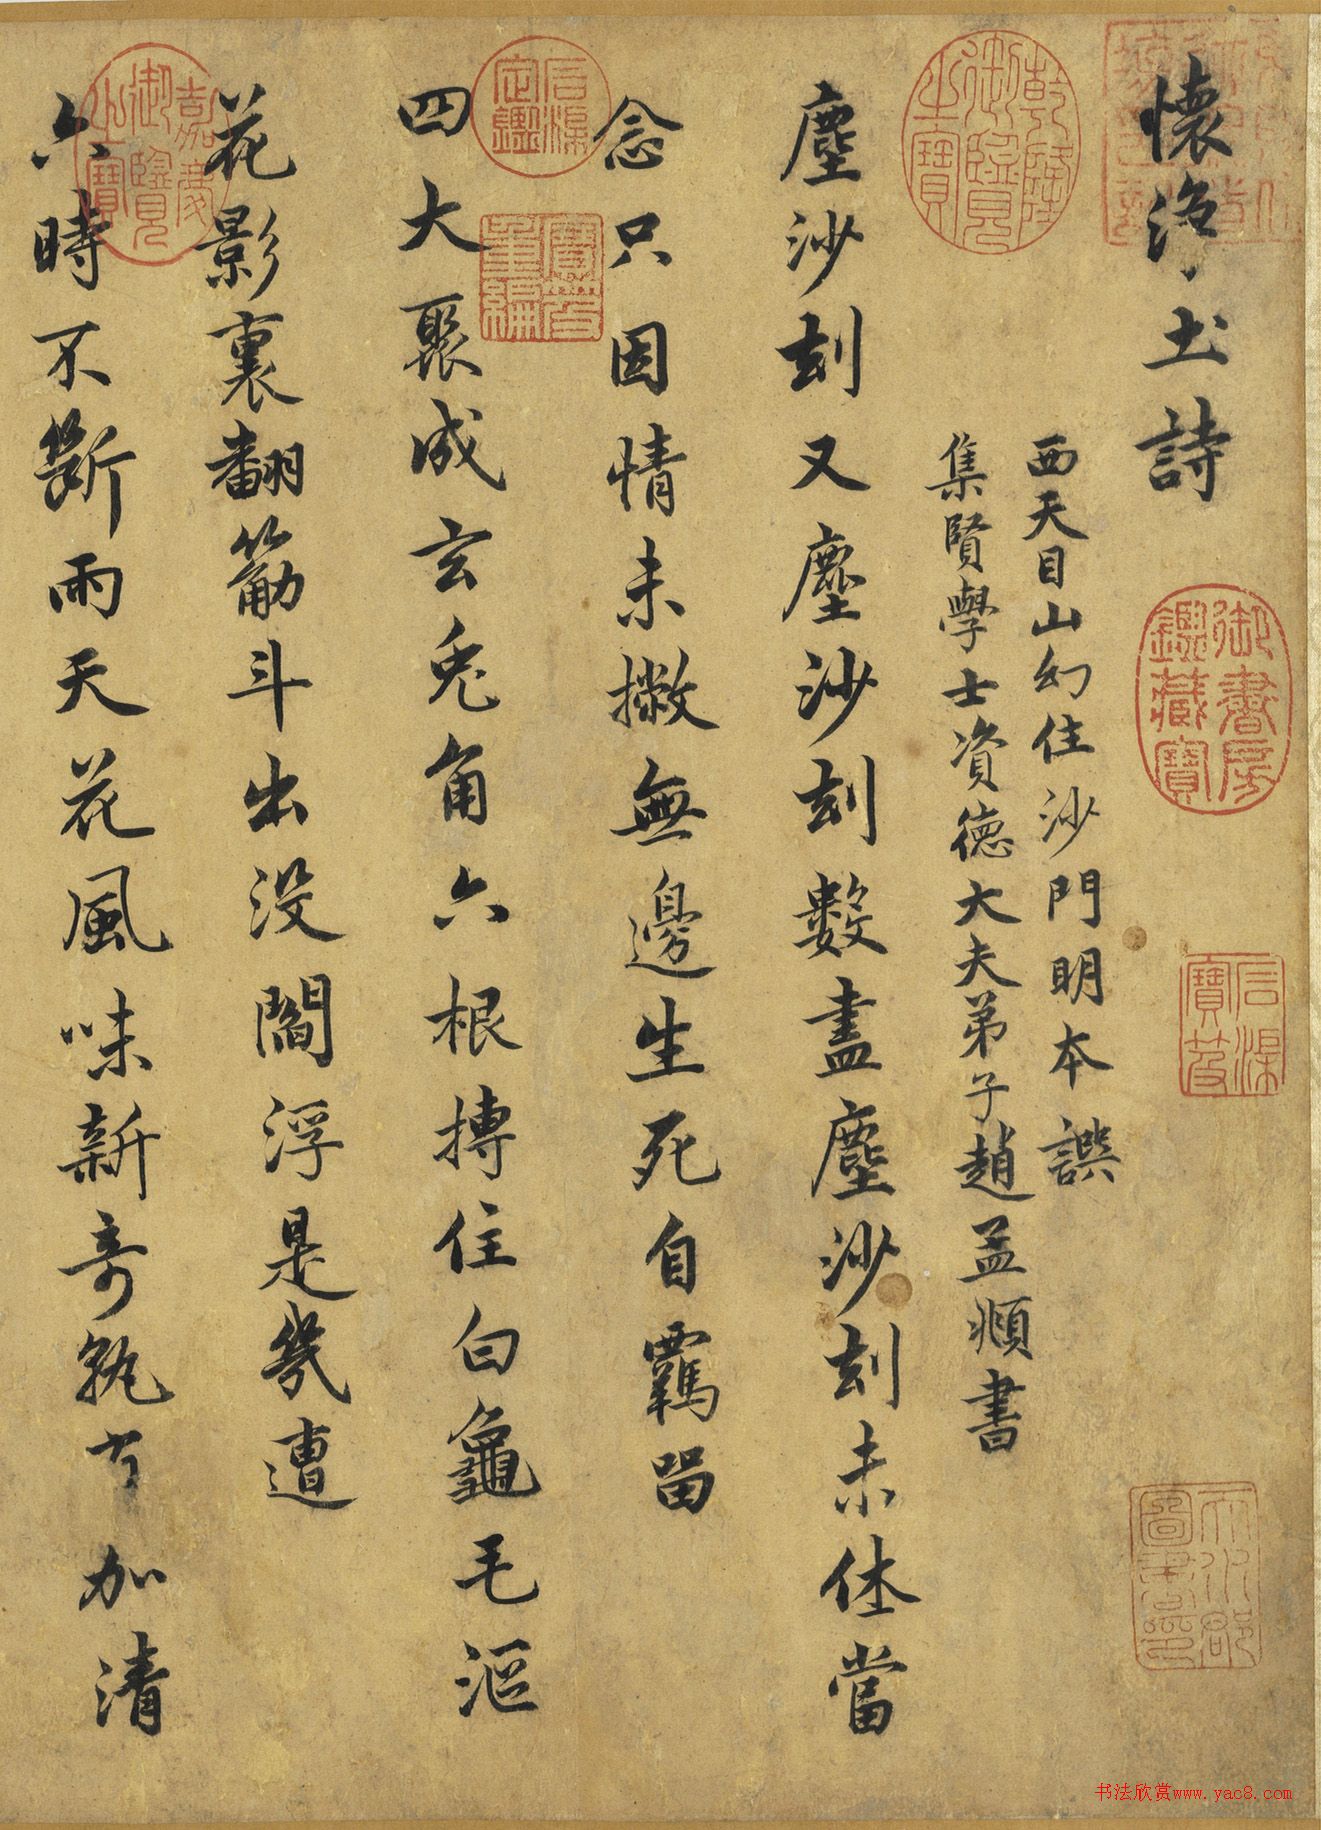 懷淨土詩
西天目山幻住沙門明本譔
集賢學士資德大夫弟子趙孟頫書
塵沙刻又塵沙刻數盡塵沙刻未休當
念只因情未撇無邊生死自羈留
四大聚成玄兔角六根摶住白龜毛漚
花影裏翻筋斗出沒閻浮是幾遭
六時不斷雨天花風味新奇孰可加清
乾隆御覽之寶
嘉慶御覽之寶
石渠定鑑
寶笈重編
御書房鑑藏寶
石渠寶笈
天水郡圖書印
书法欣赏www.yac8.com